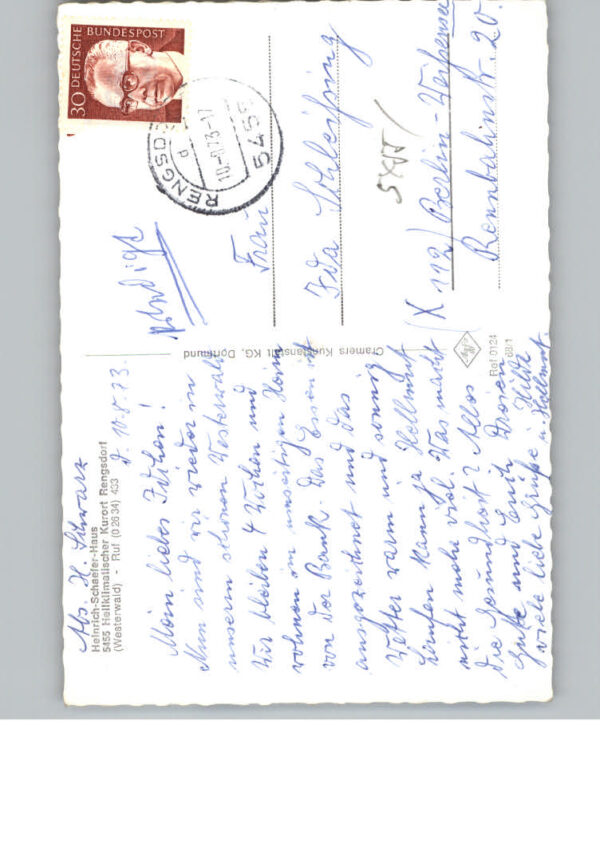 Abs. H. Schwarz
Heinrich-Schaefer-Haus
5455 Heilklimatischer Kurort Rengsdorf
(Westerwald) - Ruf (0 26 34) 433
d. 10.8.73.
Mein liebes Idchen!
Nun sind wir wieder in
unserm schönen Westerwald
Wir bleiben 4 Wochen und
wohnen im unseitigen Heim
von der Bank. Das Essen ist
ausgezeichnet und das
Wetter warm und sonnig
Laufen kann ja Hellmut
nicht mehr viel. Was macht
die Gesundheit? Alles
Gute und Euch Dreien
viele liebe Grüße Hilde
u. Hellmut.
Cramers Kunstanstalt KG, Dortmund
Ref 0124
68/1
30 DEUTSCHE
BUNDESPOST
5455 RENGSDO
d
10.-8.73-17
Frau
Ida Schleising
5XII
X 112 / Berlin-Weißensee
Rennbahnstr. 20.